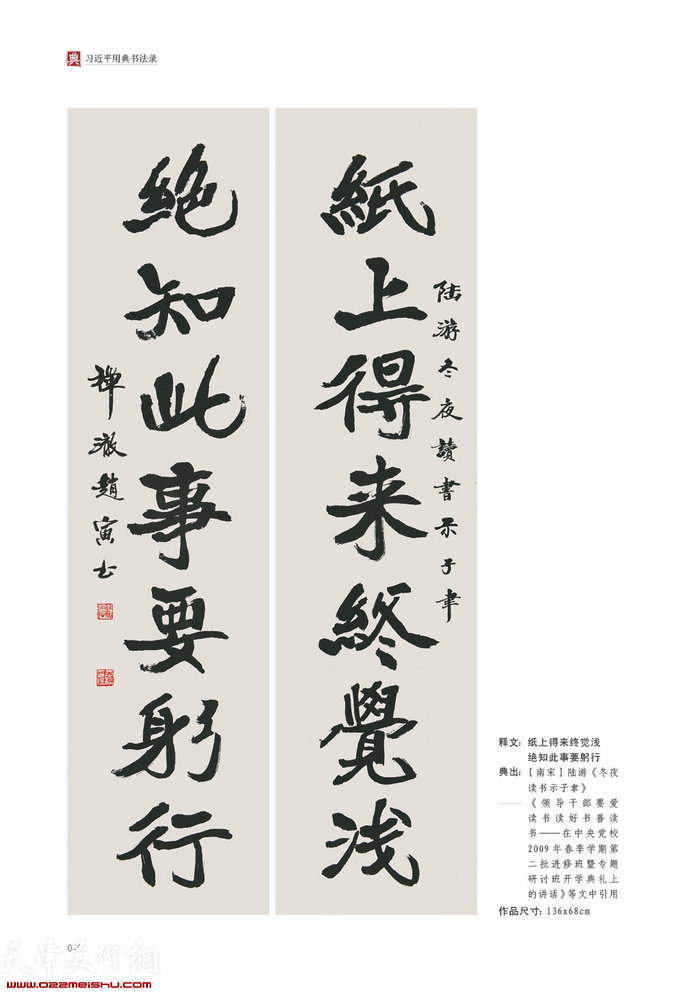 典 习近平用典书法录
紙上得来終覺浅
陆游冬夜讀書示子聿
絶知此事要躬行
禅澈趙寅书
释文：纸上得来终觉浅
绝知此事要躬行
典出：［南宋］陆游《冬夜
读书示子聿》
——《领导干部要爱
读书读好书善读
书——在中央党校
2009年春季学期第
二批进修班暨专题
研讨班开学典礼上
的讲话》等文中引用
作品尺寸：136x68cm
天津美术網
www.022meishu.com